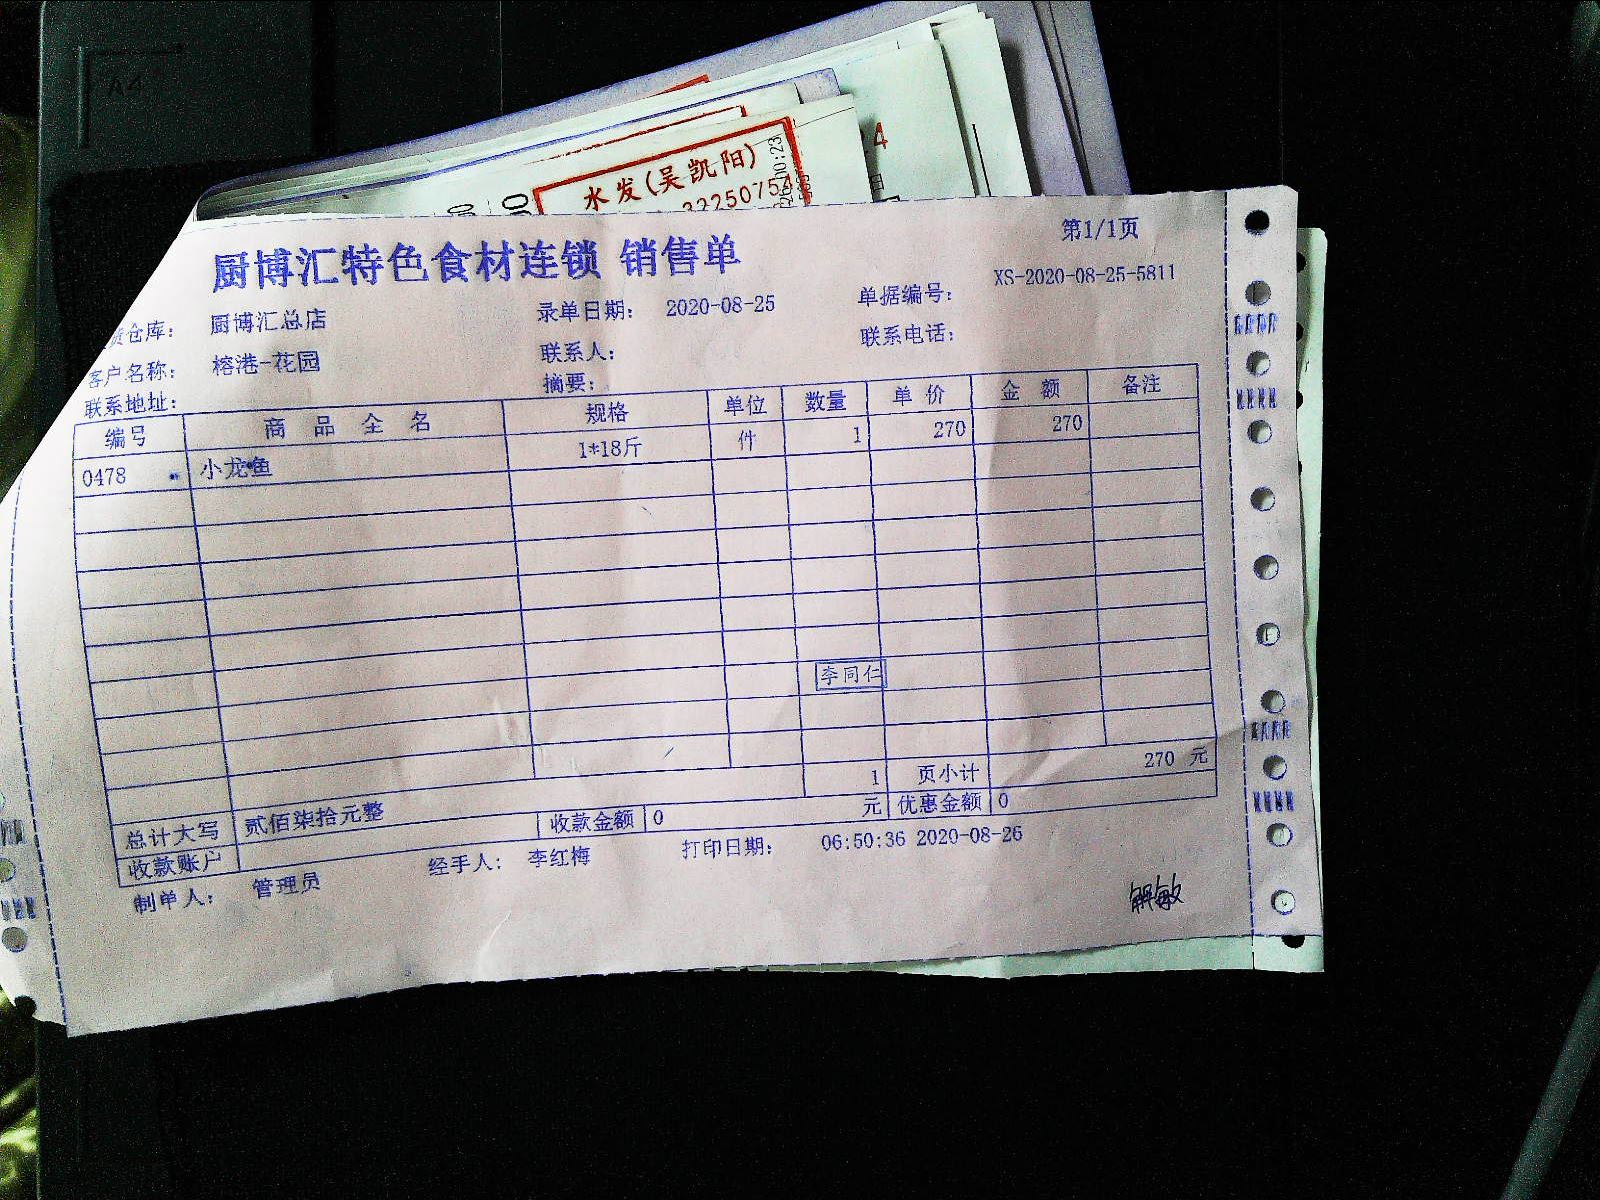 A4
水发(吴凯阳)
厨博汇特色食材连锁 销售单
第1/1页
仓库： 厨博汇总店 录单日期： 2020-08-25 单据编号： XS-2020-08-25-5811
客户名称： 榕港-花园 联系人： 联系电话：
联系地址： 摘要：
编号 商品全名 规格 单位 数量 单价 金额 备注
0478 小龙鱼 1*18斤 件 1 270 270
李同仁
1 页小计 270 元
总计大写 贰佰柒拾元整 收款金额 0 元 优惠金额 0
收款账户
制单人： 管理员 经手人： 李红梅 打印日期： 06:50:36 2020-08-26
解敏